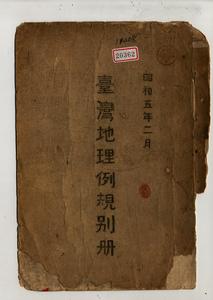 昭和五年二月
臺灣地理例規別册
20362